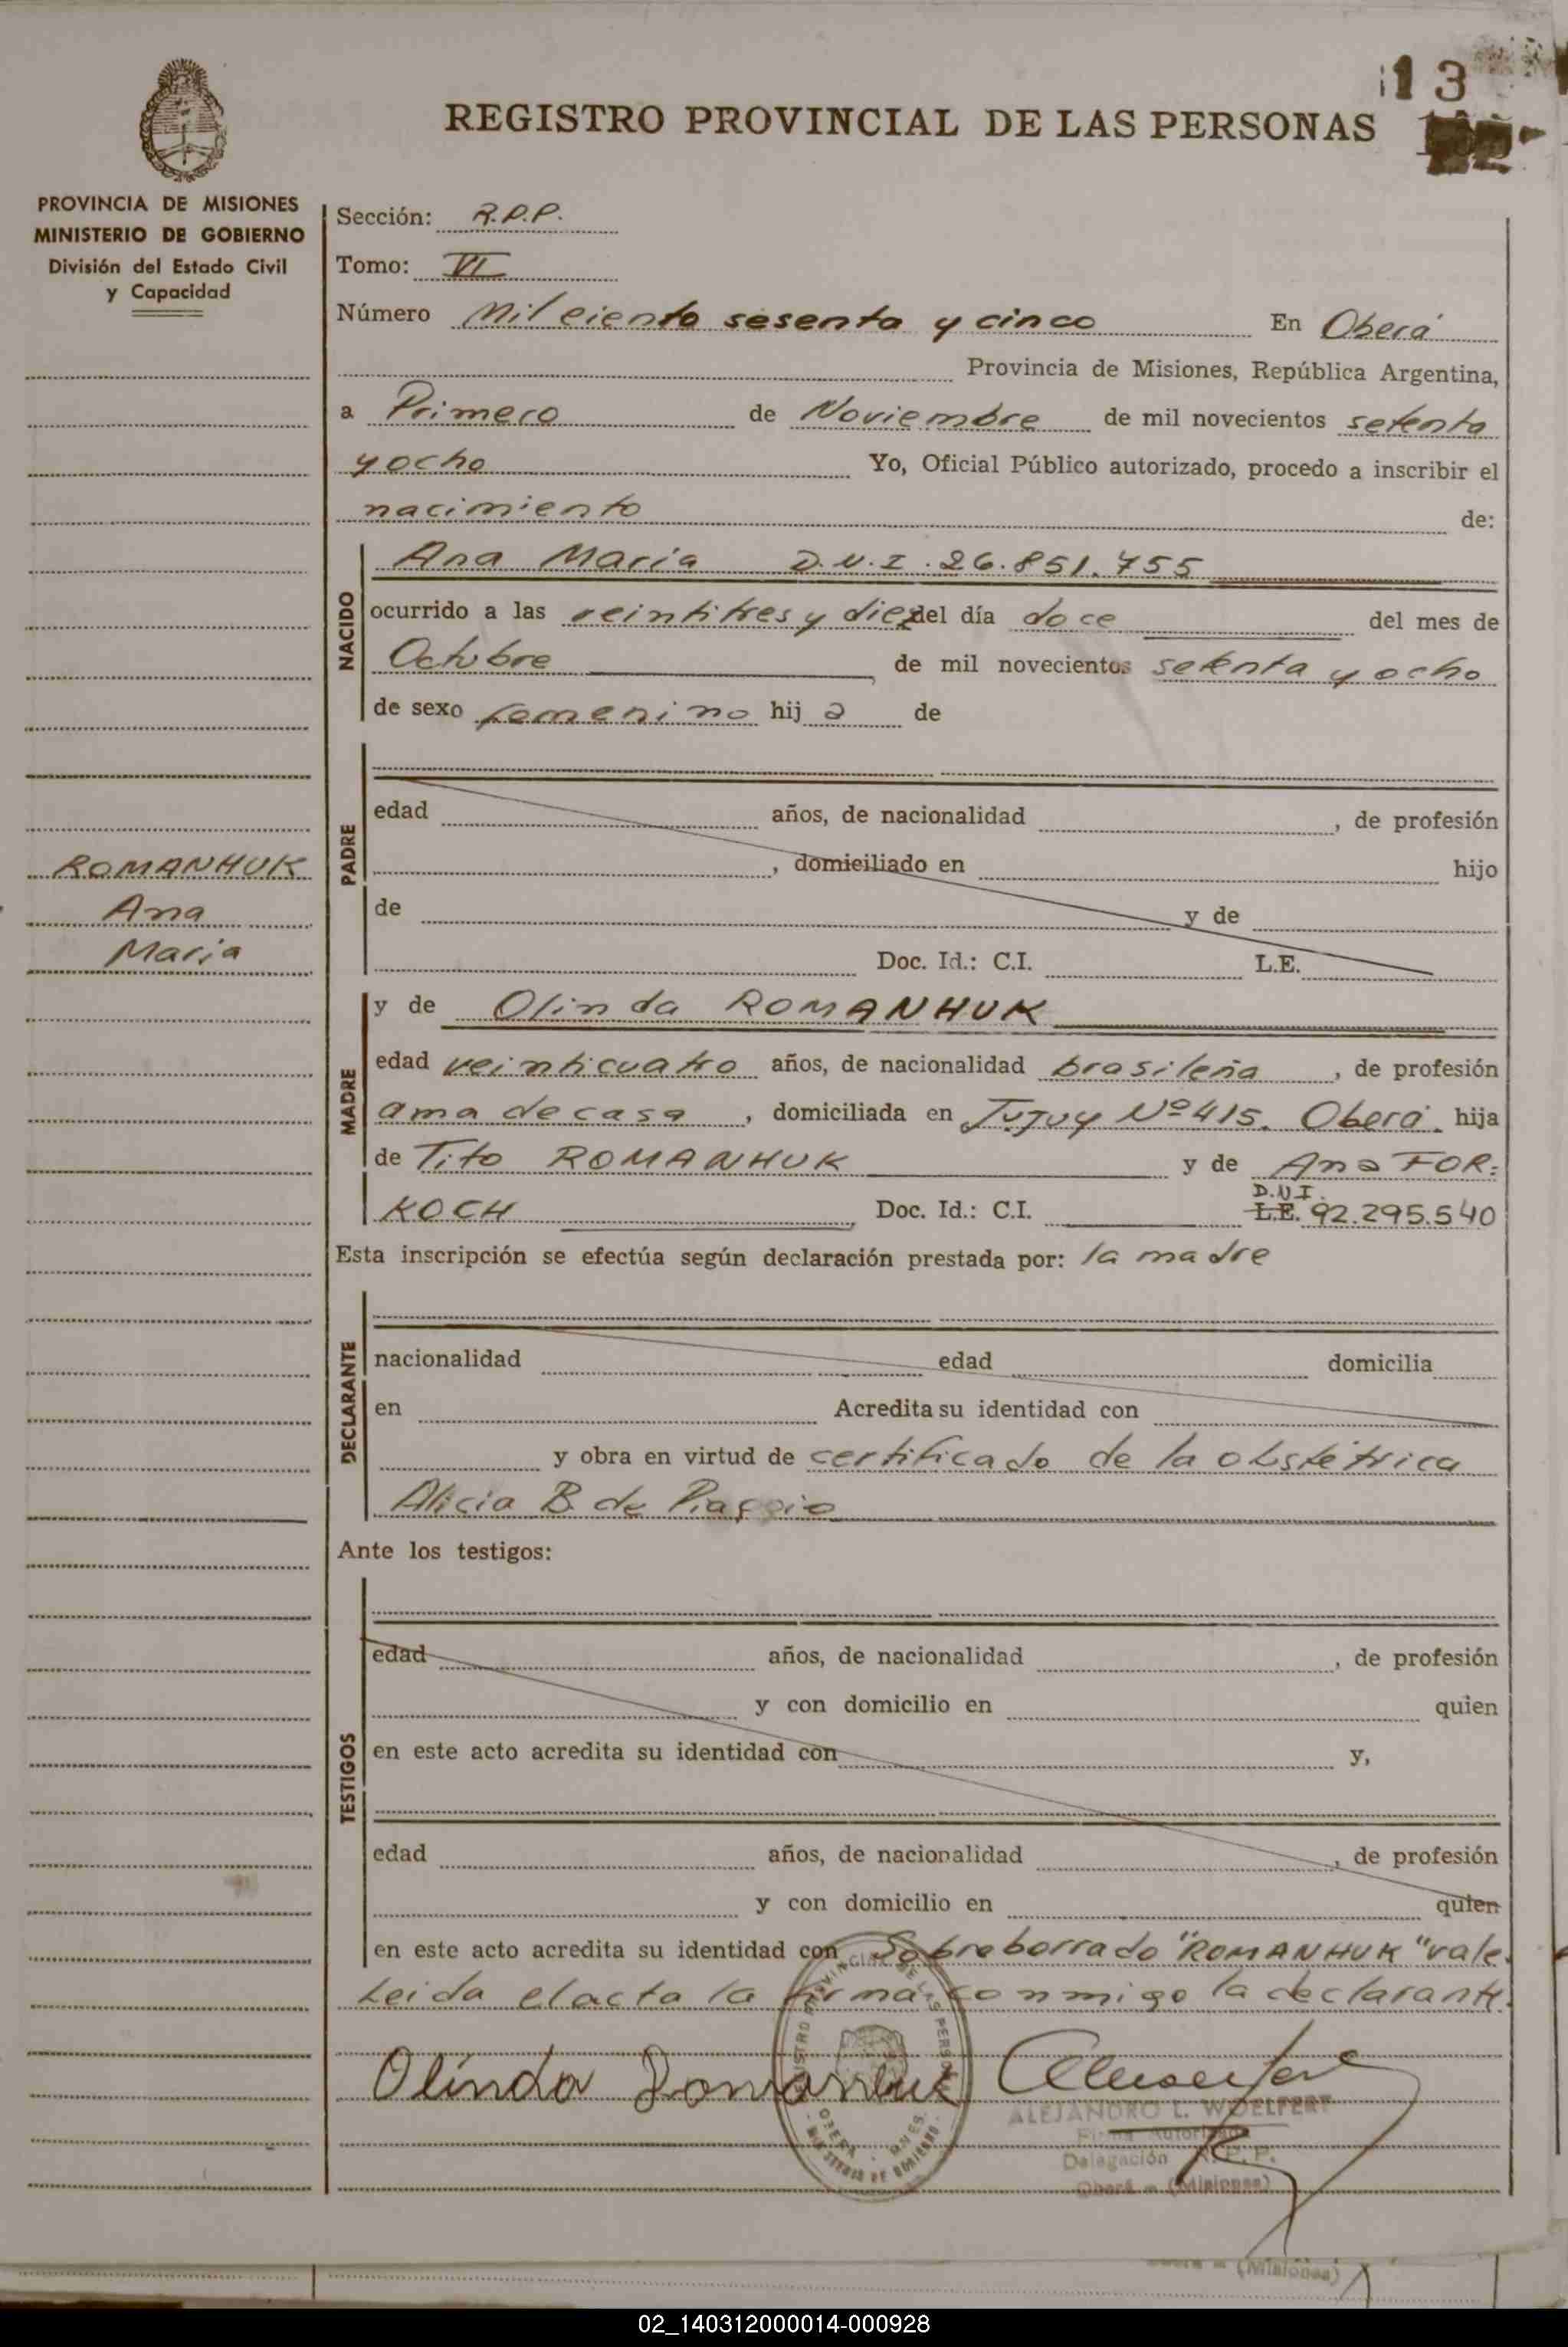 13
REGISTRO PROVINCIAL DE LAS PERSONAS
PROVINCIA DE MISIONES
MINISTERIO DE GOBIERNO
División del Estado Civil
y Capacidad
Sección: R.P.P.
Tomo: VI
Número Mil ciento sesenta y cinco En Oberá
Provincia de Misiones, República Argentina,
a Primero de Noviembre de mil novecientos setenta
y ocho Yo, Oficial Público autorizado, procedo a inscribir el
nacimiento de:
NACIDO
Ana María D.N.I. 26.851.755
ocurrido a las veintitres y diez del día doce del mes de
Octubre de mil novecientos setenta y ocho
de sexo femenino hij a de
PADRE
edad años, de nacionalidad , de profesión
, domiciliado en hijo
de y de
Doc. Id.: C.I. L.E.
ROMANHUK
Ana
María
MADRE
y de Olinda ROMANHUK
edad veinticuatro años, de nacionalidad brasileña , de profesión
ama de casa , domiciliada en Jujuy Nº 415. Oberá. hija
de Tito ROMANHUK y de Ana FOR:
KOCH Doc. Id.: C.I. L.E. D.N.I. 92.295.540
Esta inscripción se efectúa según declaración prestada por: la madre
DECLARANTE
nacionalidad edad domicilia
en Acredita su identidad con
y obra en virtud de certificado de la obstétrica
Alicia B. de Piaggio
Ante los testigos:
TESTIGOS
edad años, de nacionalidad , de profesión
y con domicilio en quien
en este acto acredita su identidad con y,
edad años, de nacionalidad , de profesión
y con domicilio en quien
en este acto acredita su identidad con Sobreborrado "ROMANHUK" vale.
Leida el acta la firma conmigo la declarante.
Olinda Romanhuk
ALEJANDRO L. WOELFERT
Firma Autorizada
Delegación R.P.P.
Oberá - (Misiones)
Oberá - (Misiones)
02_140312000014-000928